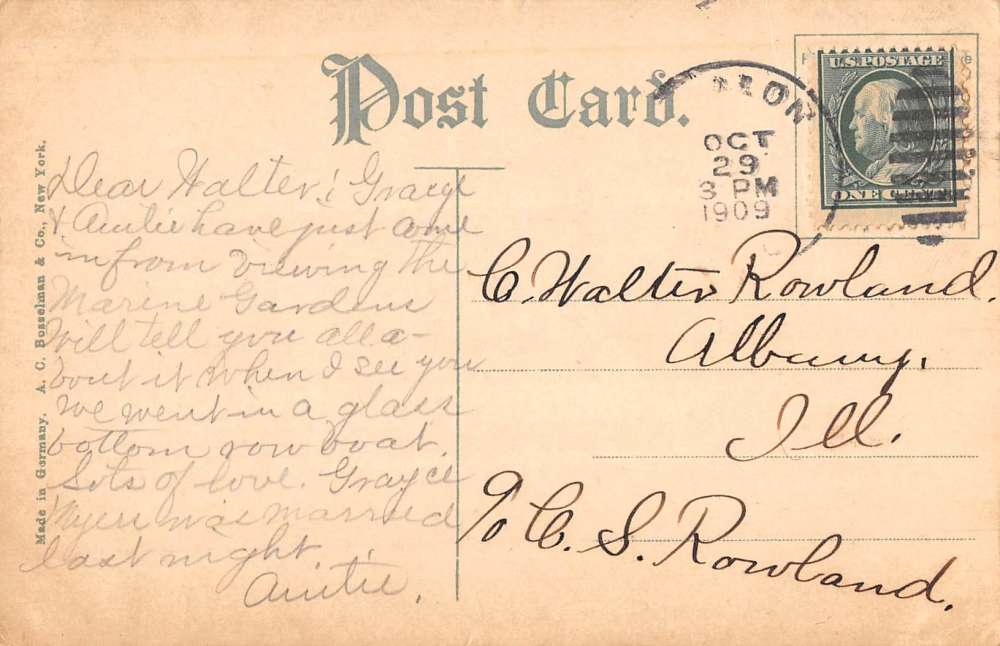 Post Card.
U.S. POSTAGE
ONE CENT
OCT
29
3 PM
1909
Made in Germany. A. C. Bosselman & Co., New York.
Dear Walter; Grayce
& Auntie have just come
in from viewing the
Marine Gardens
Will tell you all a-
bout it when I see you
we went in a glass
bottom row boat.
Lots of love. Grayce
Myers was married
last night.
Auntie.
C. Walter Rowland.
Albany,
Ill.
c/o C. S. Rowland.